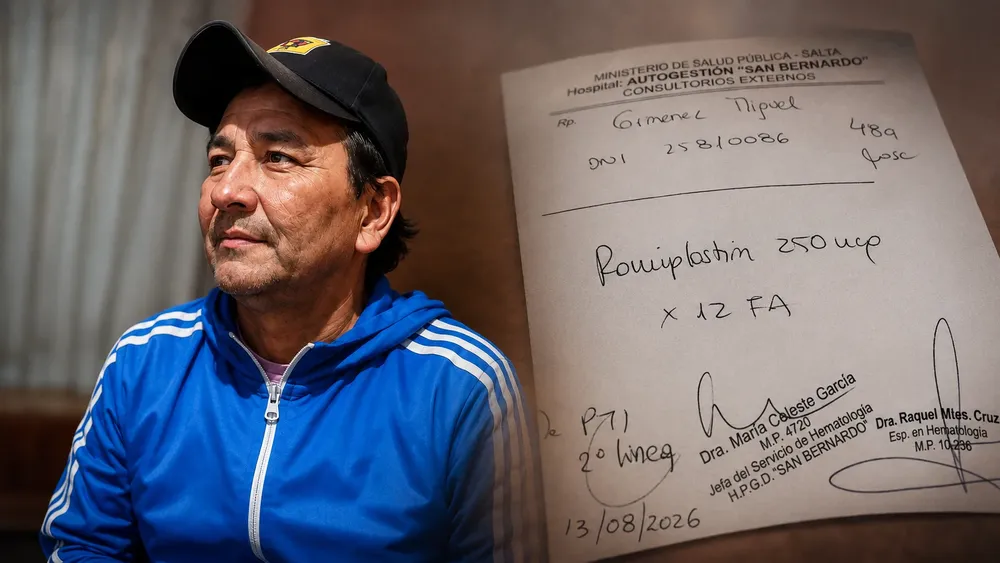 MINISTERIO DE SALUD PÚBLICA - SALTA
Hospital: AUTOGESTIÓN "SAN BERNARDO"
CONSULTORIOS EXTERNOS
Rp. Gimenez Miguel
DNI 25810086 48a
Romiplostin 250 mcp
x 12 FA
De PTI
2º linea
13/08/2026
Dra. María Celeste García
M.P. 4720
Jefa del Servicio de Hematología
H.P.G.D. "SAN BERNARDO"
Dra. Raquel Mtes. Cruz
Esp. en Hematología
M.P. 10.236